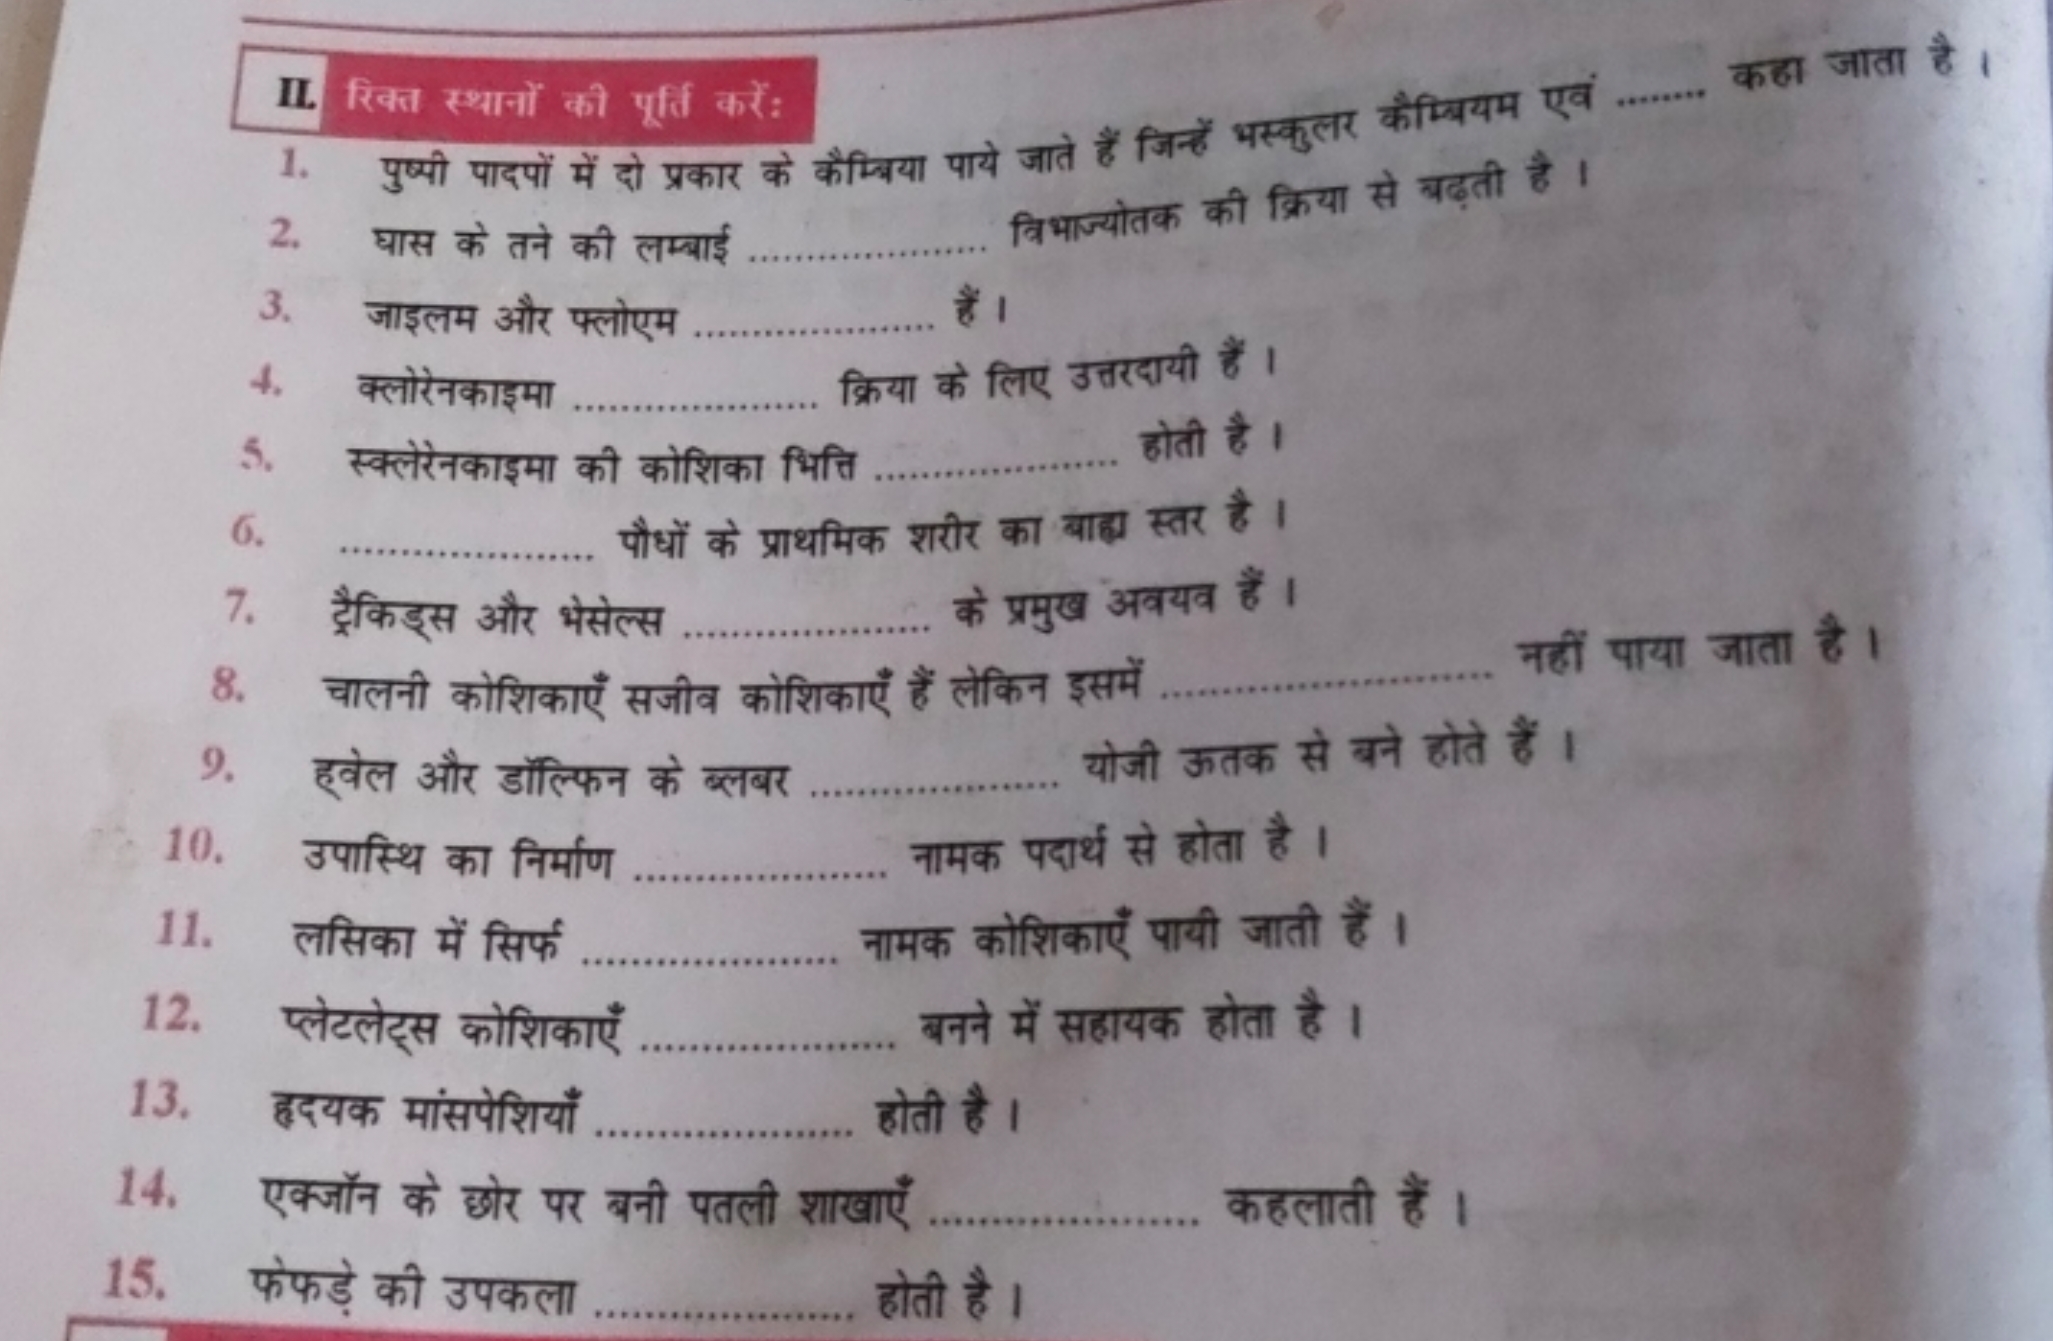 II. रिक्त स्थानों की पूर्ति करें:
1. पुष्पी पादपों में दो प्रकार के कैम्बिया पाये जाते हैं जिन्हें भस्कुलर कैम्बियम एवं ........ कहा जाता है ।
2. घास के तने की लम्बाई ..................... विभाज्योतक की क्रिया से बढ़ती है ।
3. जाइलम और फ्लोएम ..................... हैं ।
4. क्लोरेनकाइमा ..................... क्रिया के लिए उत्तरदायी हैं ।
5. स्क्लेरेनकाइमा की कोशिका भित्ति ..................... होती है ।
6. ..................... पौधों के प्राथमिक शरीर का बाह्य स्तर है ।
7. ट्रैकिड्स और भेसेल्स ..................... के प्रमुख अवयव हैं ।
8. चालनी कोशिकाएँ सजीव कोशिकाएँ हैं लेकिन इसमें ............................ नहीं पाया जाता है ।
9. ह्वेल और डॉल्फिन के ब्लबर ..................... योजी ऊतक से बने होते हैं ।
10. उपास्थि का निर्माण ..................... नामक पदार्थ से होता है ।
11. लसिका में सिर्फ ..................... नामक कोशिकाएँ पायी जाती हैं ।
12. प्लेटलेट्स कोशिकाएँ ..................... बनने में सहायक होता है ।
13. हृदयक मांसपेशियाँ ..................... होती है ।
14. एक्जॉन के छोर पर बनी पतली शाखाएँ ..................... कहलाती हैं ।
15. फेफड़े की उपकला ..................... होती है ।